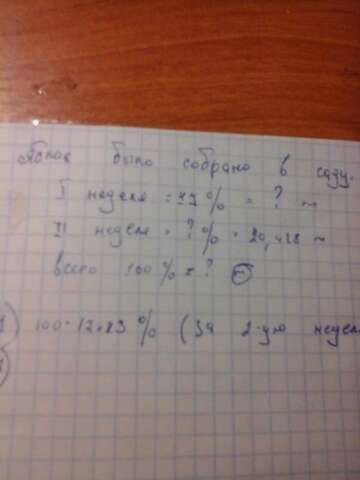 Яблок было собрано в саду.
I неделя = 17% = ? т
II неделя = ?% = 20,418 т
всего 100% = ? т
100-17=83% (за 2-ую недел